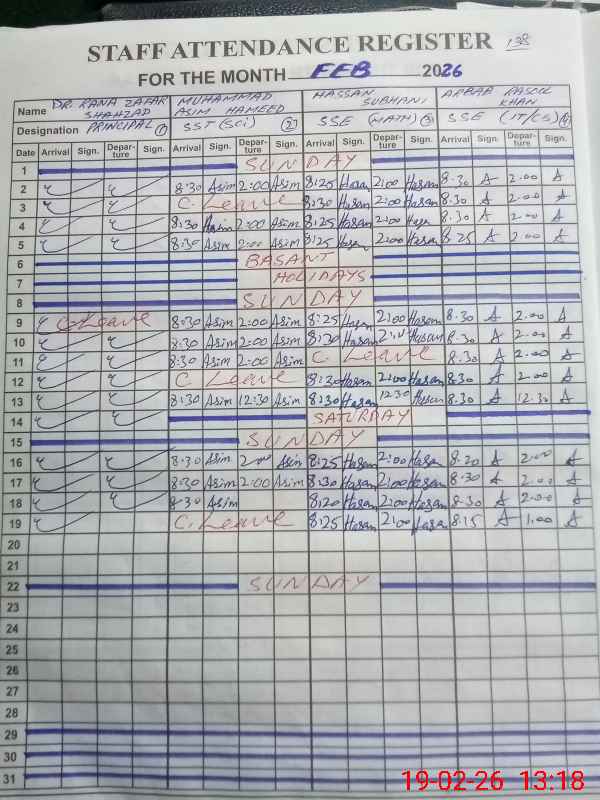 STAFF ATTENDANCE REGISTER 138
FOR THE MONTH FEB 2026
Name DR. RANA ZAFAR SHAHZAD MUHAMMAD ASIM HAMEED HASSAN SUBHANI ARBAB RASOOL KHAN
Designation PRINCIPAL (1) SST (SCi) (2) SSE (MATH) (3) SSE (IT/CS) (4)
Date Arrival Sign. Departure Sign. Arrival Sign. Departure Sign. Arrival Sign. Departure Sign. Arrival Sign. Departure Sign.
1 SUNDAY
2 8:30 Asim 2:00 Asim 8:25 Hasan 2:00 Hasan 8.30 A 2.00 A
3 C. Leave 8:30 Hasan 2:00 Hasan 8.30 A 2.00 A
4 8:30 Asim 2:00 Asim 8:25 Hasan 2:00 Hasan 8.30 A 2.00 A
5 8:30 Asim 2:00 Asim 8:25 Hasan 2:00 Hasan 8.25 A 2.00 A
6 BASANT
7 HOLIDAYS
8 SUNDAY
9 C. Leave 8:30 Asim 2:00 Asim 8:25 Hasan 2:00 Hasan 8.30 A 2.00 A
10 8:30 Asim 2:00 Asim 8:30 Hasan 2:00 Hasan 8.30 A 2.00 A
11 8:30 Asim 2:00 Asim C. Leave 8.30 A 2.00 A
12 C. Leave 8:30 Hasan 2:00 Hasan 8.30 A 2.00 A
13 8:30 Asim 12:30 Asim 8:30 Hasan 12:30 Hasan 8.30 A 12.30 A
14 SATURDAY
15 SUNDAY
16 8:30 Asim 2:00 Asim 8:25 Hasan 2:00 Hasan 8.20 A 2.00 A
17 8:30 Asim 2:00 Asim 8:30 Hasan 2:00 Hasan 8.30 A 2.00 A
18 8:30 Asim 8:20 Hasan 2:00 Hasan 8.30 A 2.00 A
19 C. Leave 8:25 Hasan 2:00 Hasan 8.15 A 1.00 A
20
21
22 SUNDAY
23
24
25
26
27
28
29
30
31
19-02-26 13:18